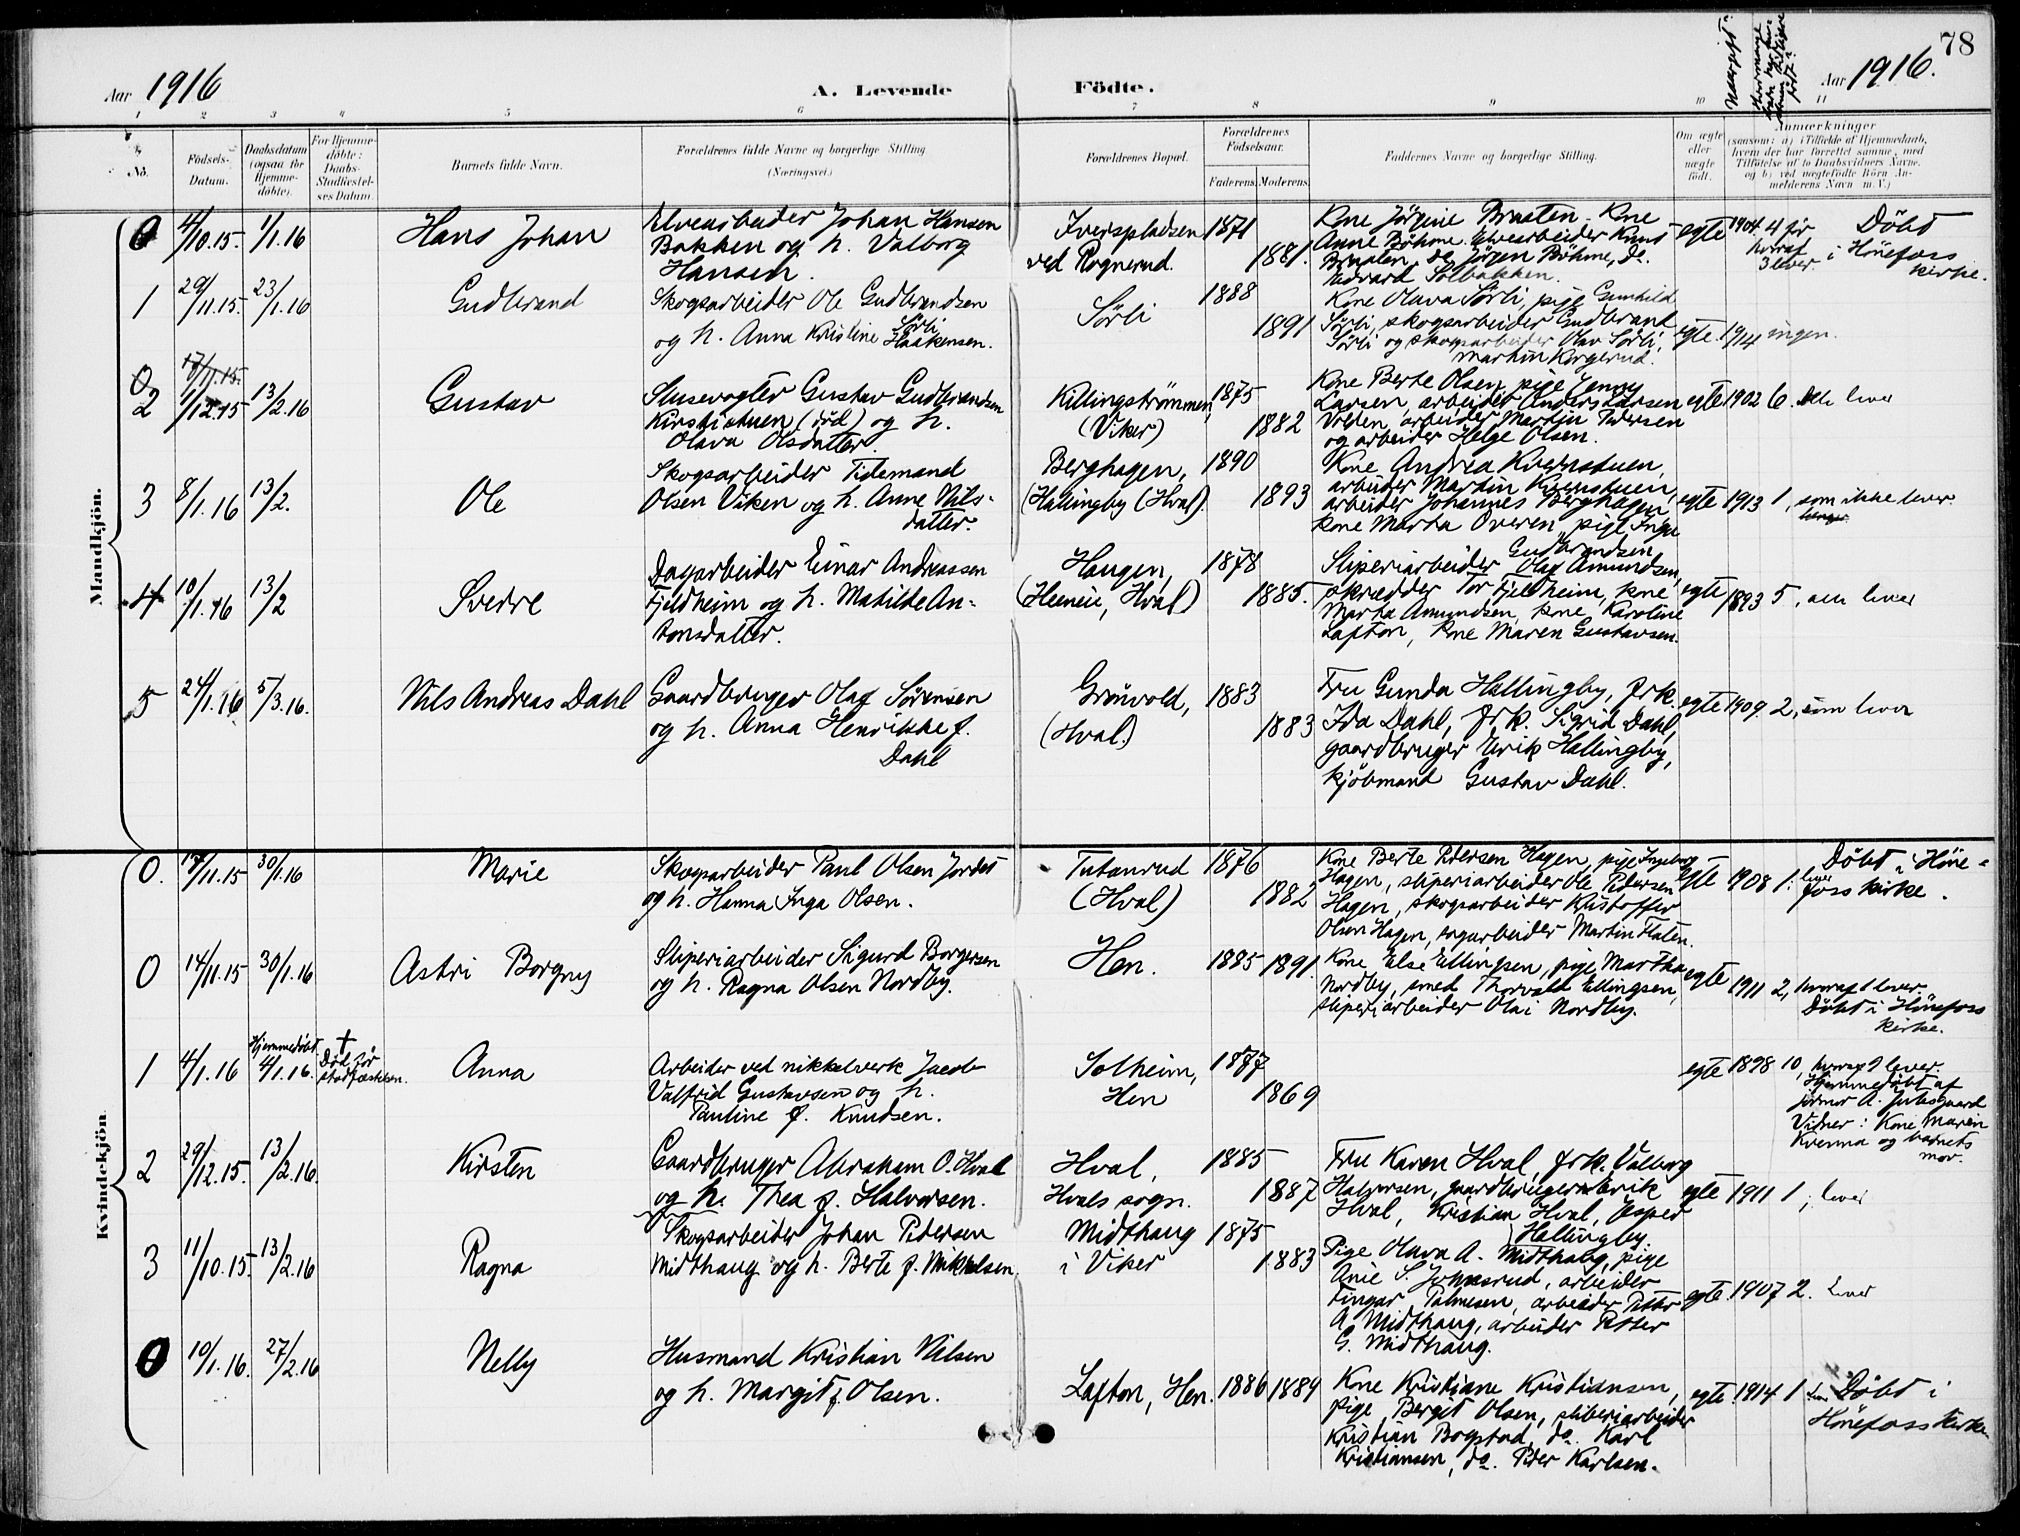 78
Aar 1916
A. Levende
Födte.
Aar 1916.
1 2 3 4 5 6 7 8 9 10 11
No.
Födsels-
Datum.
Daabsdatum
(ogsaa for
Hjemme-
döbte).
For Hjemme-
döbte:
Daabs-
Stadfæstel-
ses Datum.
Barnets fulde Navn.
Forældrenes fulde Navne og borgerlige Stilling
(Næringsvei.)
Forældrenes Bopæl.
Forældrenes
Födselsaar.
Faderens. Moderens.
Faddernes Navne og borgerlige Stilling.
Om ægte
eller
uægte
födt.
Naar gift?
Anmærkninger
(saasom: a) i Tilfælde af Hjemmedaab,
hvem der har forrettet samme, med
Tilföielse af to Daabsvidners Navne,
og b) ved uægtefödte Börn An-
melderens Navn m. V.)
Mandkjön.
0 4/10.15. 1/1.16 Hans Johan
Elvearbeider Johan Hansen
Bakken og h. Valborg
Hansen.
Iverspladsen
ved Rognerud.
1871
1881.
Kone Jörgine Braaten. Kone
Anne Böhme. Elvearbeider Knut
Braaten, do Jörgen Böhme, do.
Edvard Solbakken.
egte 1904. 4 før
hvoraf
3 lever.
Döbt
i Hönefoss
kirke.
1 29/11.15. 23/1.16 Gudbrand
Skogsarbeider Ole Gudbrandsen
Sörli
og h. Anna Kristine Haakensen.
Sörli
1888
1891
Kone Olava Sörli, pige Gunhild
Sörli, skogsarbeider Gudbrant
Sörli og skogsarbeider Olav Sörli,
Martin Korgerud.
egte. 1914 ingen.
0 17/11.15.
2 1/12.15 13/2.16 Gustav
Slusevogter Gustav Gudbrandsen
Kirstistuen (død) og h.
Olava Olsdatter.
Killingströmmen,
(Viker)
1875
1882
Kone Berte Olsen, pige Jenny
Larsen, arbeider Anders Larsen
Volden, arbeider Martin Pedersen
og arbeider Helge Olsen.
egte 1902 6. Alle lever
3 8/1.16 13/2. Ole
Skogsarbeider Tidemand
Olsen Viken og h. Anne Nils-
datter.
Berghagen,
(Hallingby (Hval).
1890
1893
Kone Andrea Kvernstuen,
arbeider Martin Kvernstuen,
arbeider Johannes Berghagen,
kone Marta Överen, pige Inga
Gudbrandsen
egte 1913 1, som ikke lever.
4 10/1.16 13/2 Sverre
Dagarbeider Einar Andreassen
Fjeldheim og h. Matilde An-
tonsdatter.
Haugen,
(Heieneie, Hval)
1878
1885.
Sliperiarbeider Olaf Amundsen,
skrædder Tor Fjeldheim, kone
Marta Amundsen, kone Karoline
Lafton, kone Maren Gustavsen.
egte 1893 5, alle lever
5 24/1.16 5/3.16. Nils Andreas Dahl
Gaardbruger Olaf Sörensen
og h. Anna Henrikke f.
Dahl
Grönvold,
(Hval.)
1883
1883
Fru Gunda Hallingby, frk.
Ida Dahl, frk. Sigrid Dahl,
gaardbruger Erik Hallingby,
kjöbmand Gustav Dahl.
egte 1909. 2, som lever
Kvindekjön
0. 17/11.15 30/1.16 Marie
Skogsarbeider Paul Olsen Jordet
og h. Hanna Inga Olsen.
Tutanrud
(Hval)
1876
1882
Kone Berte Pedersen Hagen, pige Ingeborg
Hagen, sliperiarbeider Ole Pedersen
Hagen, skogsarbeider Kristoffer
Olsen Hagen, sagarbeider Martin Flaten.
egte 1908 1. lever
Döbt i Höne-
foss kirke.
0 14/11.15 30/1.16 Astri Borgny
Sliperiarbeider Sigurd Borgersen
og h. Ragna Olsen Nordby.
Hen.
1885 1891.
Kone Else Ellingsen, pige Martha
Nordby, smed Thorvald Ellingsen,
sliperiarbeider Olai Nordby.
egte 1911 2, hvoraf 1 lever.
Döbt i Hönefoss
kirke.
1 4/1.16 Hjemmedöbt 4/1.16. † Död før
stadfæstelsen.
Anna
Arbeider ved nikkelverk Jacob
Valfrid Gustavsen og h.
Pauline f. Knudsen.
Solheim,
Hen
1877
1869
egte 1898 10, hvoraf 9 lever.
Hjemmedöbt af
jormor A. Julsgaard
Vidner: Kone Maren
Kvenna og barnets
mor.
2 29/12.15. 13/2.16. Kirsten
Gaardbruger Abraham O. Hval
og h. Thea f. Halvorsen.
Hval,
Hvals sogn.
1885
1887
Fru Karen Hval, frk. Valborg
Halvorsen, gaardbrugerne Erik
Hval, Kristian Hval, Asper
Hallingby.
egte 1911 1, lever
3 11/10.15. 13/2.16 Ragna
Skogsarbeider Johan Pedersen
Midthaug og h. Berte f. Mikkelsen
Midthaug
i Viker
1875
1883
Pige Olava A. Midthaug, pige
Anie S. Johnsrud, arbeider
Fingar Palmesen, arbeider Petter
A. Midthaug, arbeider Petter
G. Midthaug.
egte. 1907 2. lever
0 10/1.16. 27/2.16 Nelly
Husmand Kristian Nilsen
og h. Margit f. Olsen.
Lafton, Hen.
1886 1889
Kone Kristiane Kristiansen,
pige Bergit Olsen, sliberiarbeider
Kristian Bogstad, do. Karl
Kristiansen, do. Peder Karlsen.
egte. 1914 1
Döbt i
Hönefoss kirke.